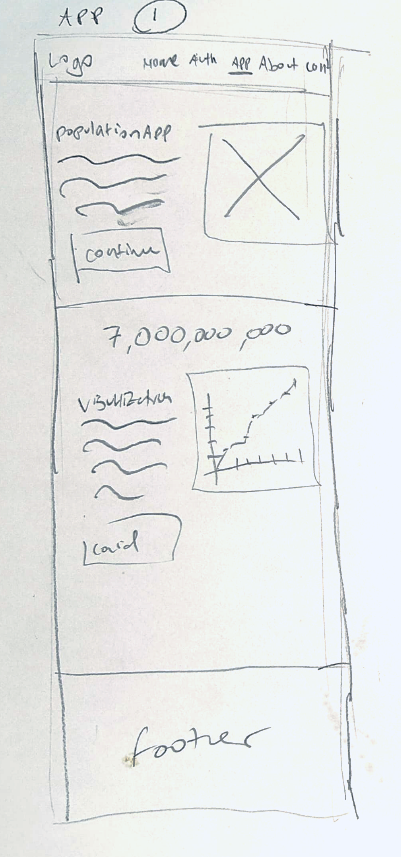 APP 1
Logo Home Auth APP About cont
populationApp
continue
7,000,000,000
Visullization
covid
footer